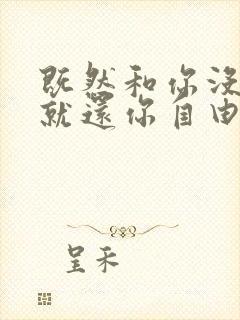 既然和你没
就還你自由
呈禾